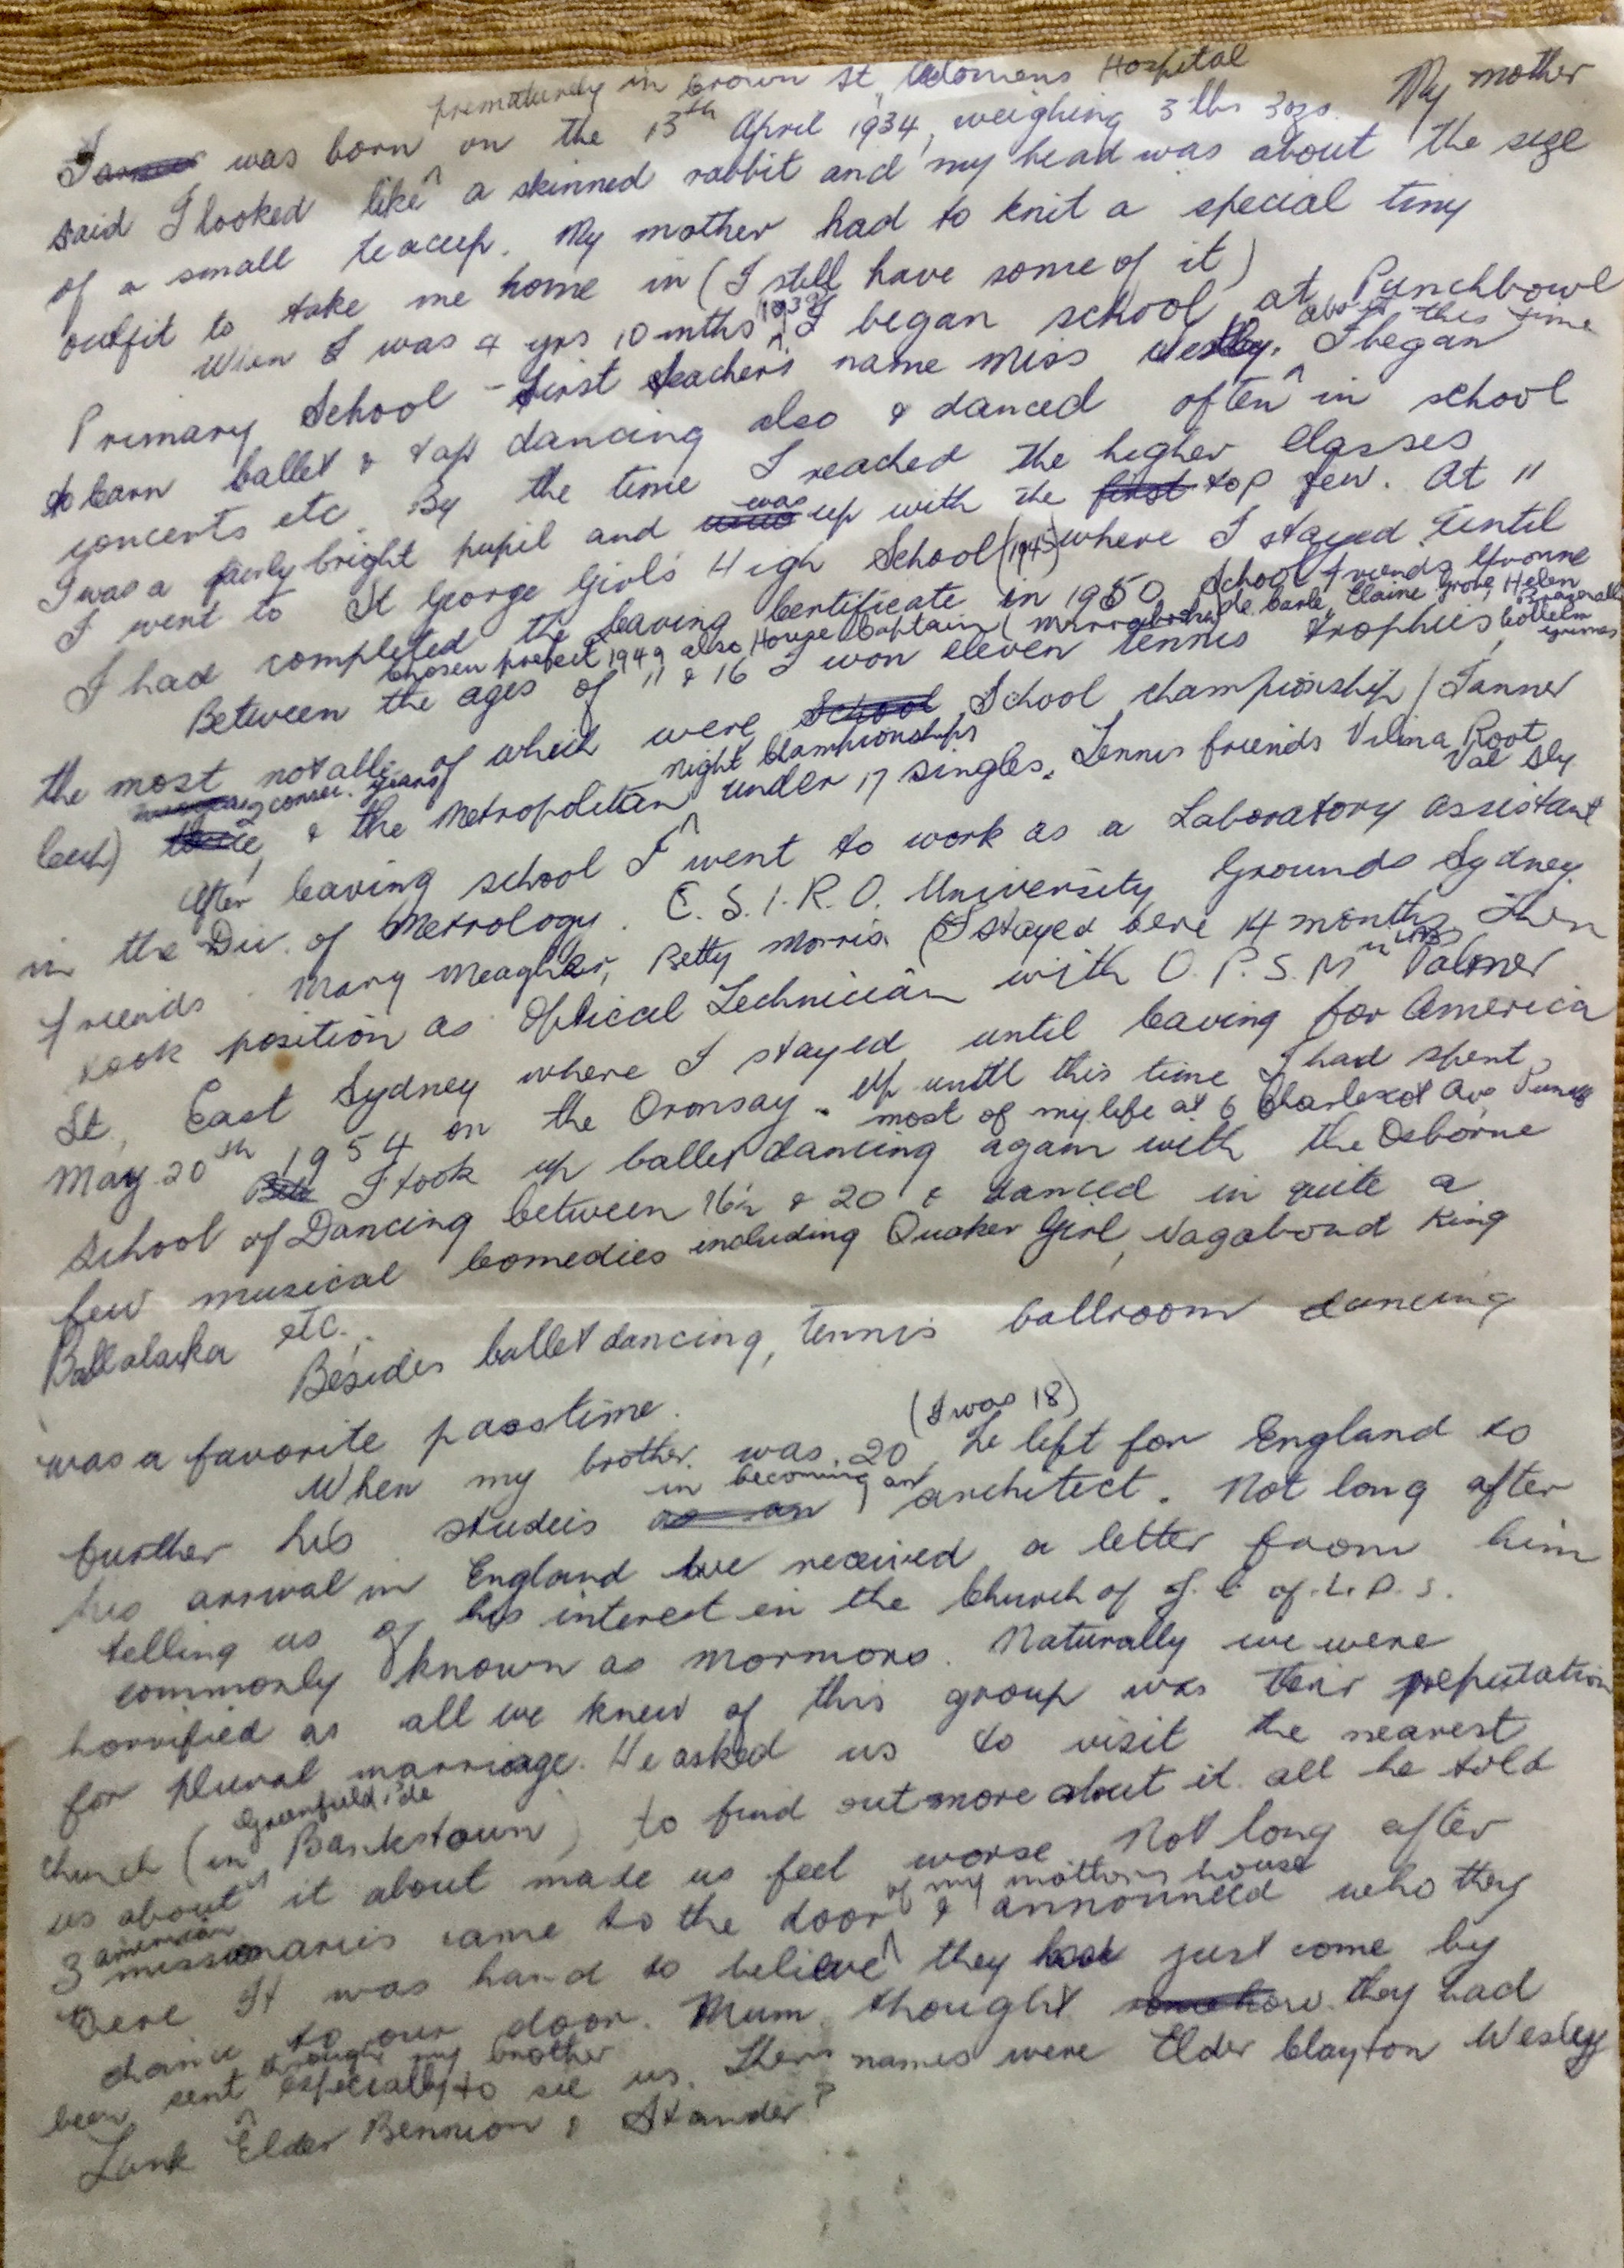 prematurely in Crown St, Womens Hospital
I was born on the 13th April 1934, weighing 3 lbs 3ozs. My mother
said I looked like a skinned rabbit and my head was about the size
of a small teacup. My mother had to knit a special tiny
outfit to take me home in (I still have some of it)
When I was 4 yrs 10 mths 1939 I began school at Punchbowl
Primary School - first teacher's name Miss Westby. about this time I began
to learn ballet & tap dancing also & danced often in school
concerts etc. By the time I reached the higher classes
I was a fairly bright pupil and was up with the first top few. At 11
I went to St George Girl's High School (1945) where I stayed until
I had completed the Leaving Certificate in 1950. School friends Yvonne
chosen prefect 1949 also House Captain ( de Carle, Elaine Grove, Helen
Between the ages of 11 & 16 I won eleven tennis trophies,
the most notable of which were School School championship (Tanner
Cup) 2 consec. years, & the Metropolitan night Championships under 17 singles. Tennis friends Vilma Root
Val Sly
After leaving school I went to work as a Laboratory assistant
in the Div. of Metrology. C.S.I.R.O. University Grounds Sydney.
friends Mary Meagher, Betty Morris (I stayed here 14 months then
took position as Optical Technician with O.P.S.M in Palmer
St, East Sydney where I stayed until leaving for America
May 20th 1954 on the Oronsay. Up until this time I had spent
most of my life at 6 Charlescot Ave
I took up ballet dancing again with the Osborne
School of Dancing between 16½ & 20 & danced in quite a
few musical comedies including Quaker Girl, Vagabond King
Ballalaika etc.
Besides ballet dancing, tennis ballroom dancing
was a favorite passtime.
(I was 18)
When my brother was 20, he left for England to
further his studeis as an in becoming an architect. Not long after
his arrival in England we received a letter from him
telling us of his interest in the Church of J.C of L.D.S.
commonly known as Mormons. Naturally we were
horrified as all we knew of this group was their reputation
for plural marriage. He asked us to visit the nearest
church (in Greenfield Pde Bankstown) to find out more about it. all he told
us about it about made us feel worse. Not long after
3 american missionaries came to the door of my mothers house & announced who they
were It was hard to believe they had just come by
chance to our door. Mum thought somehow they had
been sent through my brother especially to see us. Their names were Elder Clayton Wesley
Lunk Elder Bennion & Stander?